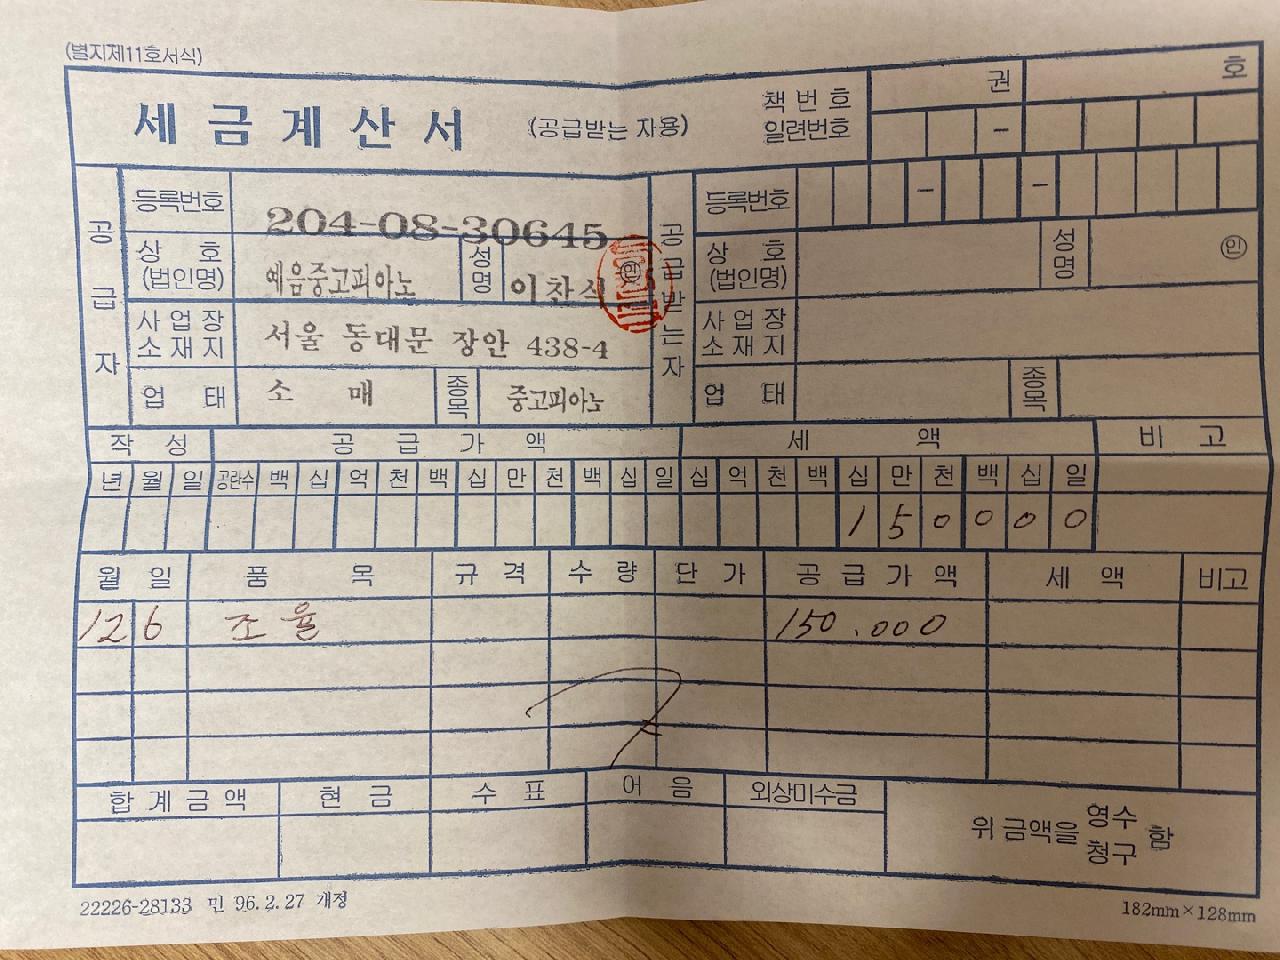 (별지제11호서식)
세금계산서 (공급받는 자용) 책번호 권 호
일련번호 -
공급자 등록번호 204-08-30645 공급받는자 등록번호 - -
상호 (법인명) 예음중고피아노 성명 이찬식 ㊞ 상호 (법인명) 성명 ㊞
사업장 소재지 서울 동대문 장안 438-4 사업장 소재지
업태 소매 종목 중고피아노 업태 종목
작성 공급가액 세액 비고
년 월 일 공란수 백 십 억 천 백 십 만 천 백 십 일 십 억 천 백 십 만 천 백 십 일
1 5 0 0 0 0
월 일 품목 규격 수량 단가 공급가액 세액 비고
12 6 조율 150.000
합계금액 현금 수표 어음 외상미수금 위 금액을 영수 청구 함
22226-28133 민 96.2.27 개정 182mm×128mm